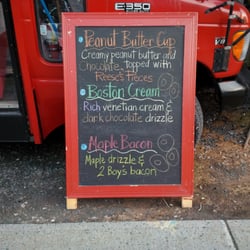 E350
Peanut Butter Cup
Creamy peanut butter and
chocolate, topped with
Reese's Pieces
Boston Cream
Rich venetian cream &
dark chocolate drizzle
Maple Bacon
Maple drizzle &
2 Boy's bacon